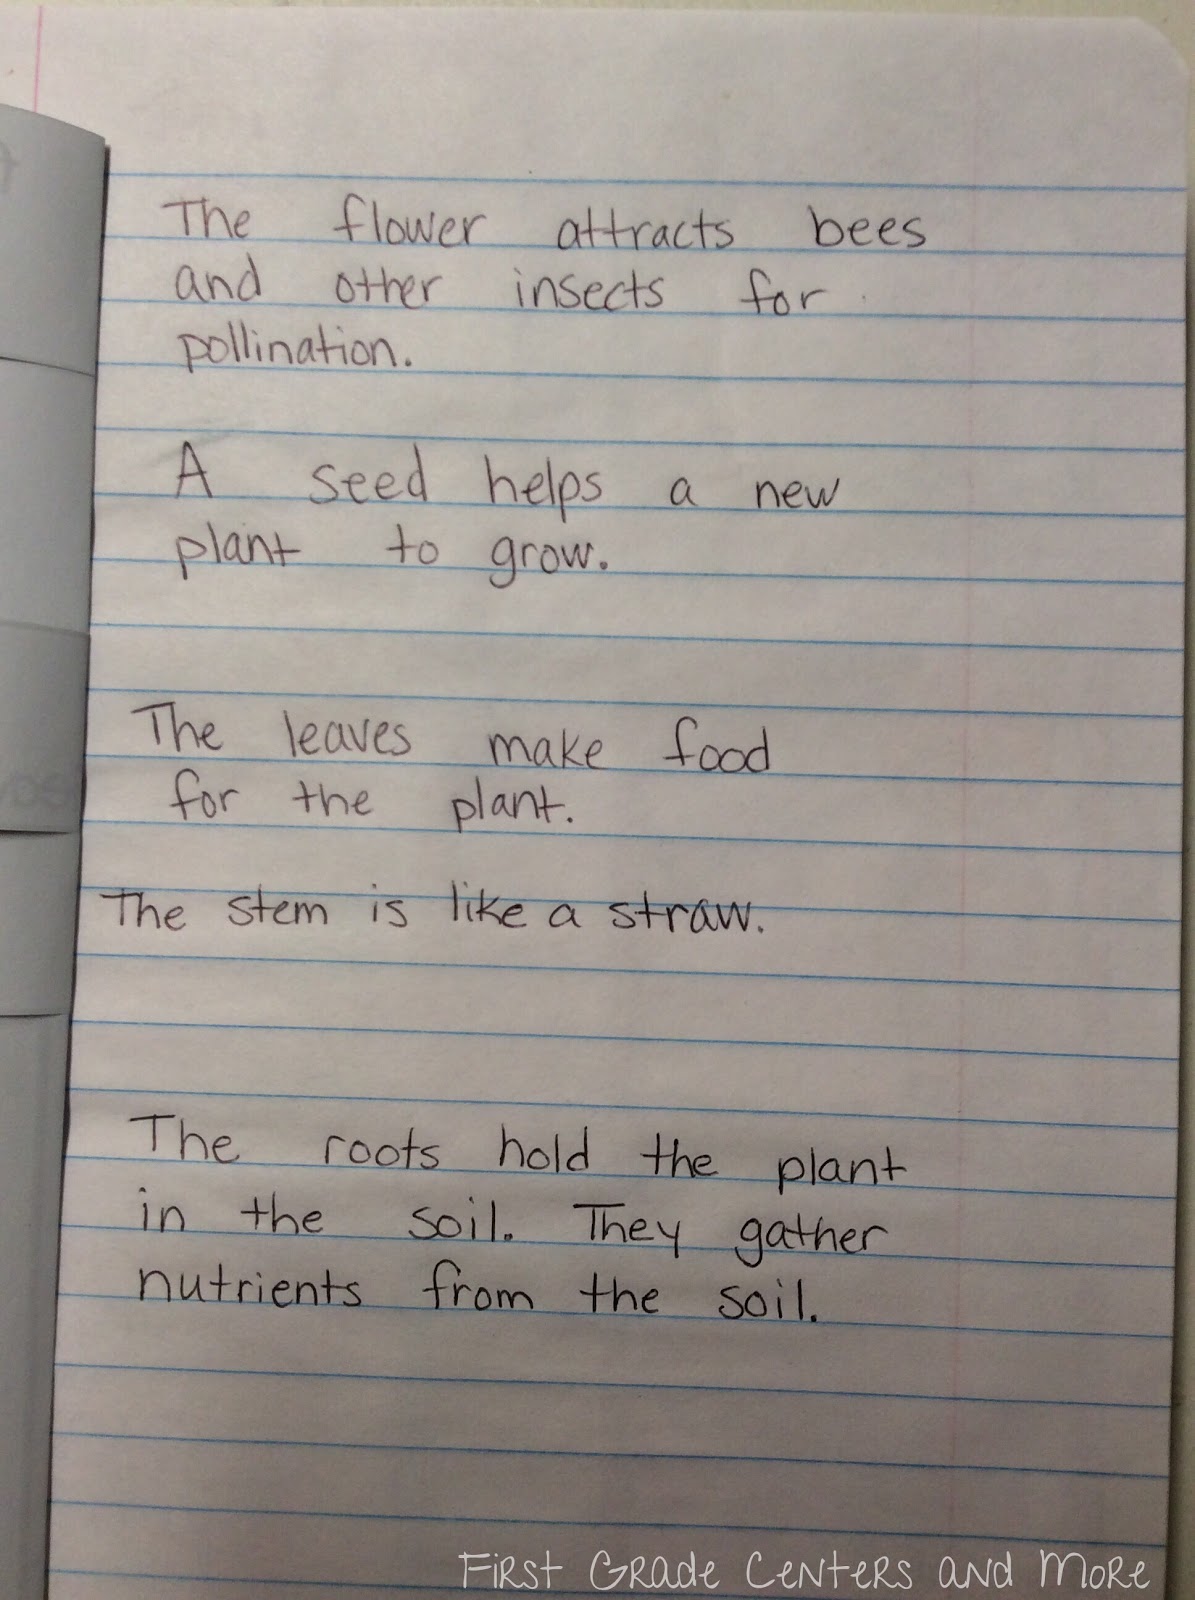 The flower attracts bees
and other insects for
pollination.
A seed helps a new
plant to grow.
The leaves make food
for the plant.
The stem is like a straw.
The roots hold the plant
in the soil. They gather
nutrients from the soil.
First Grade Centers and More